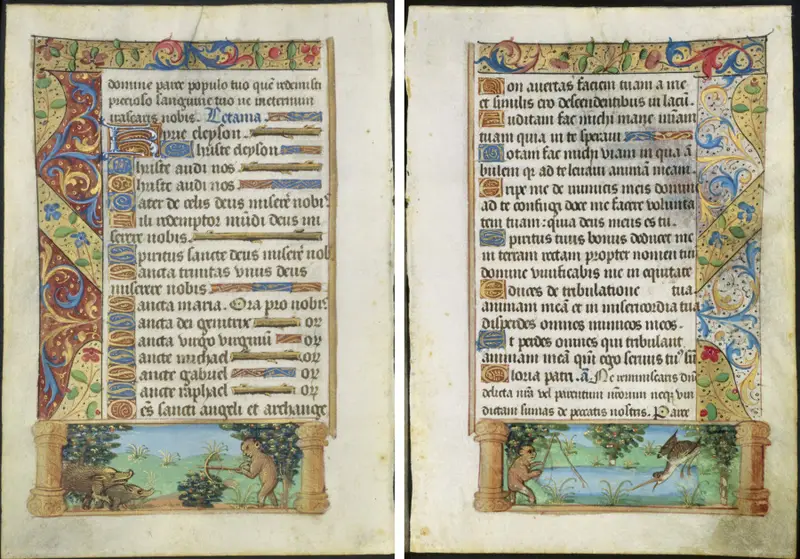 domine parce populo tuo quē redemisti
precioso sanguine tuo ne in eternum
irascaris nobis. Letania
Kyrie eleyson
Christe eleyson
Christe audi nos
Christe audi nos
Pater de celis deus miserē nobis
Fili redemptor mūdi deus mi
serere nobis.
Spiritus sancte deus miserē nob
Sancta trinitas vnus deus
miserere nobis
Sancta maria. Ora pro nobis
Sancta dei genitrix or
Sancta virgo virginū or
Sancte michael or
Sancte gabriel or
Sancte raphael or
Oēs sancti angeli et archange
Non auertas faciem tuam a me
et similis ero descendentibus in lacū.
Auditam fac michi mane mīam
tuam quia in te speraui
Notam fac michi viam in qua ā
bulem qr ad te leuaui animā meam.
Eripe me de inimicis meis domine
ad te confugi doce me facere volunta
tem tuam: quia deus meus es tu.
Spiritus tuus bonus deducet me
in terram rectam propter nomen tuū
domine viuificabis me in equitate
Educes de tribulatione tua
animam meā et in misericordia tua
disperdes omnes inimicos meos.
Et perdes omnes qui tribulant
animam meā qm̄ ego seruus tuus sū
Gloria patri. ā. Ne reminiscaris dn̄e
delicta nr̄a vel parentum nr̄orum neqз vin
dictam sumas de peccatis nostris. Parce